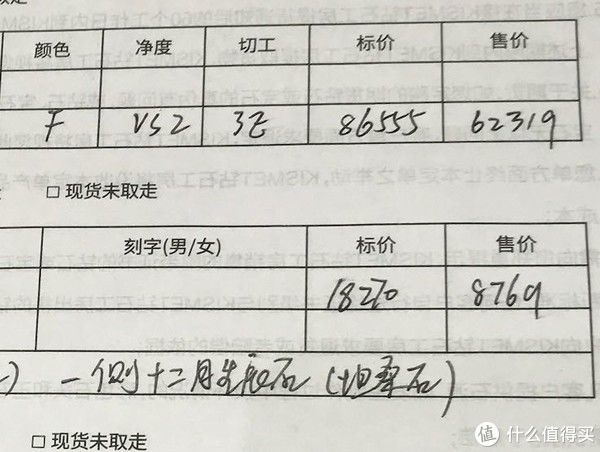 颜色 净度 切工 标价 售价
F VS2 3E 86555 62319
□ 现货未取走
刻字(男/女) 标价 售价
18270 8769
一侧十二月生辰石 (坦桑石)
□ 现货未取走
值 什么值得买